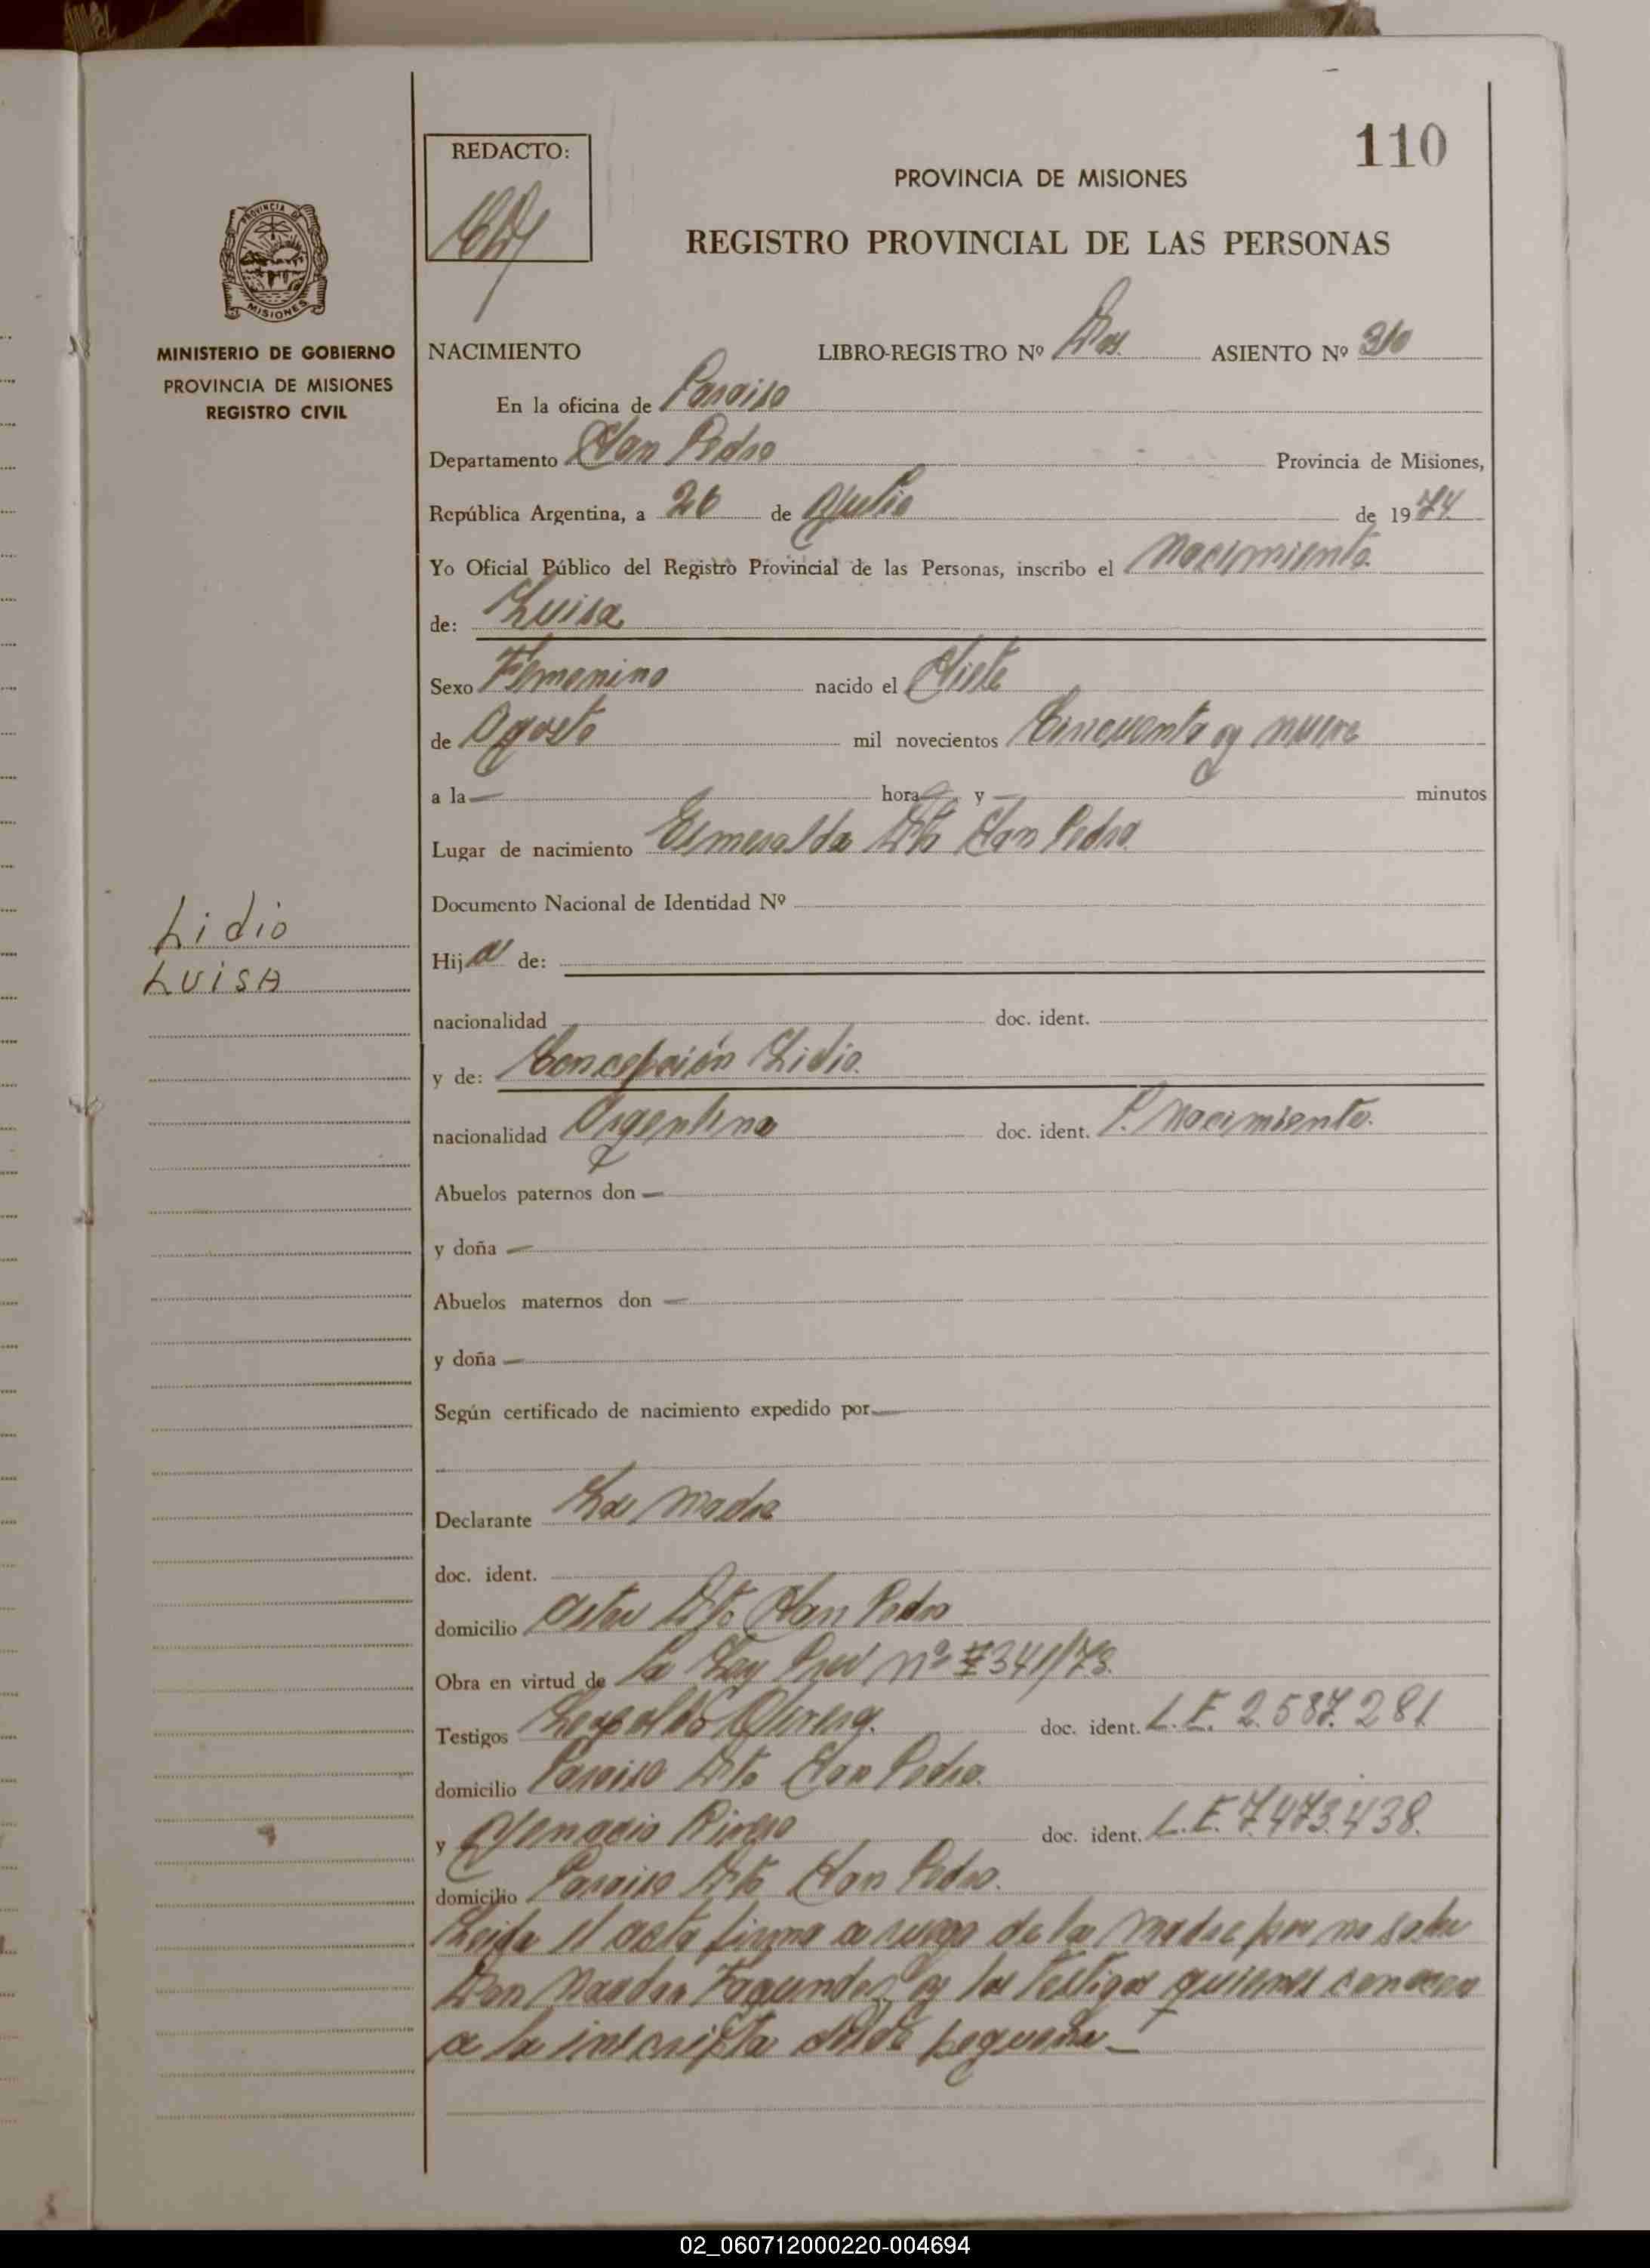 110
REDACTO:
PROVINCIA DE MISIONES
REGISTRO PROVINCIAL DE LAS PERSONAS
PROVINCIA DE
MISIONES
MINISTERIO DE GOBIERNO
PROVINCIA DE MISIONES
REGISTRO CIVIL
NACIMIENTO LIBRO-REGISTRO Nº Dos. ASIENTO Nº 310
En la oficina de Paraiso
Departamento San Pedro Provincia de Misiones,
República Argentina, a 26 de Julio de 1974
Yo Oficial Público del Registro Provincial de las Personas, inscribo el Nacimiento
de: Luisa
Sexo Femenino nacido el Siete
de Agosto mil novecientos Cincuenta y nueve
a la — hora y — minutos
Lugar de nacimiento Esmeralda Dto San Pedro
Documento Nacional de Identidad Nº
Lidio
LUISA
Hija de:
nacionalidad doc. ident.
y de: Concepción Lidio.
nacionalidad Argentina doc. ident. P. Nacimiento.
Abuelos paternos don —
y doña —
Abuelos maternos don —
y doña —
Según certificado de nacimiento expedido por —
Declarante La Madre
doc. ident.
domicilio Dto San Pedro
Obra en virtud de la Ley nº 341/73.
Testigos Leopoldo doc. ident. L.E. 2.587.281
domicilio Paraiso Dto San Pedro.
y Genario doc. ident. L.E. 7.473.438.
domicilio Paraiso Dto San Pedro.
Leida el acta firma a ruego de la Madre por no saber
Don Fagundez y los Testigos quienes conocen
a la inscripta desde pequeña —
02_060712000220-004694